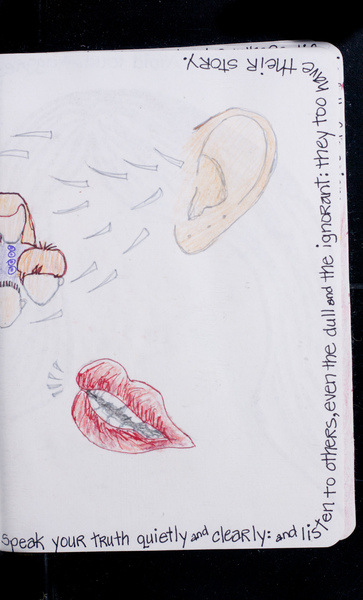 Speak your truth quietly and clearly: and listen to others, even the dull and the ignorant: they too have their story.